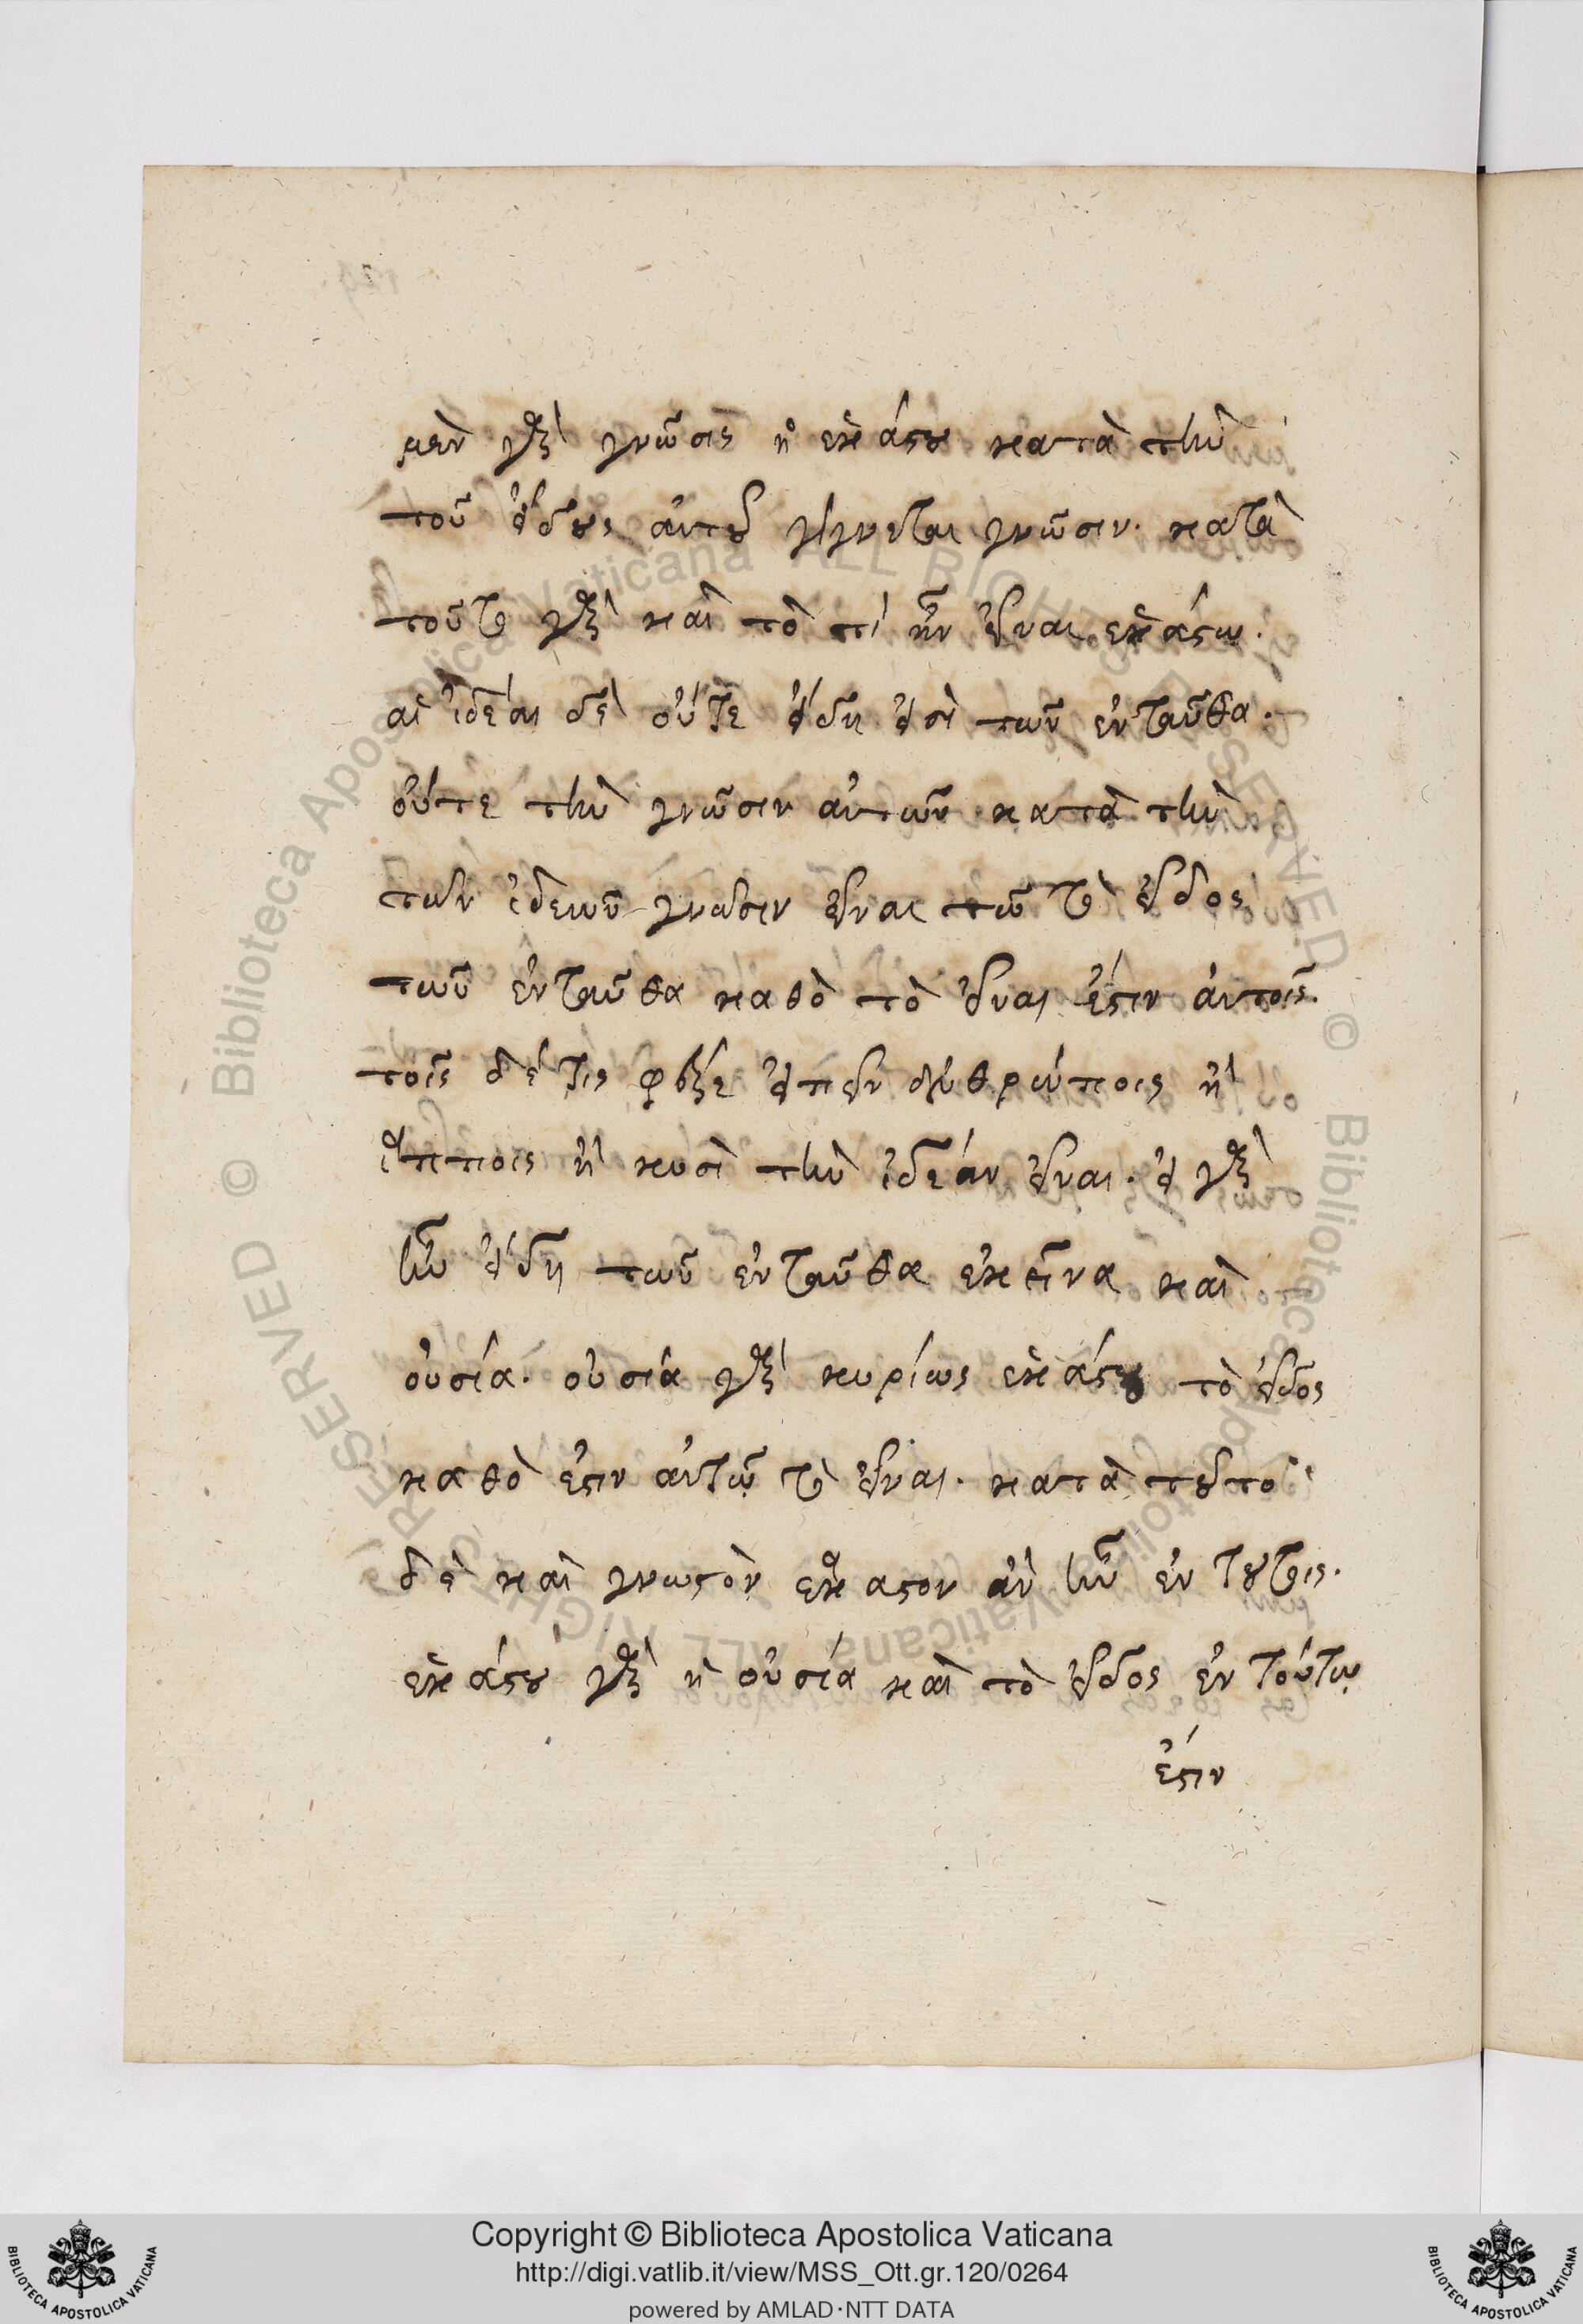 μὲν γὰρ γνῶσις ἡ ἑκάστου κατὰ τὴν
τοῦ εἴδους αὐτοῦ γίγνεται γνῶσιν· κατὰ
τοῦτο γὰρ καὶ τὸ τί ἦν εἶναι ἑκάστῳ·
αἱ ἰδέαι δὲ οὔτε εἴδη εἰσὶ τῶν ἐνταῦθα·
οὔτε τὴν γνῶσιν αὐτῶν κατὰ τὴν
τῶν ἰδεῶν γνῶσιν εἶναι τῶ τὸ εἶδος
τῶν ἐνταῦθα καθὸ τὸ εἶναι ἔστιν αὐτοῖς·
τοῖς δέ τις εἰπεῖν ἀνθρώποις ἢ
ἵπποις ἢ κυσὶ τὴν ἰδέαν εἶναι· εἰ γὰρ
ἦν εἴδη τῶν ἐνταῦθα ἐκεῖνα καὶ
οὐσία· οὐσία γὰρ κυρίως ἑκάστου τὸ εἶδος
καθὸ ἔστιν αὐτῷ τὸ εἶναι· κατὰ τοῦτο
δὲ καὶ γνωστὸν ἕκαστον ἂν ἦν ἐν τούτοις·
ἑκάστου γὰρ ἡ οὐσία καὶ τὸ εἶδος ἐν τούτῳ
ἔστιν
Copyright © Biblioteca Apostolica Vaticana
http://digi.vatlib.it/view/MSS_Ott.gr.120/0264
powered by AMLAD·NTT DATA
BIBLIOTECA APOSTOLICA VATICANA
BIBLIOTECA APOSTOLICA VATICANA
© Biblioteca Apostolica Vaticana ALL RIGHTS RESERVED
© Biblioteca Apostolica Vaticana ALL RIGHTS RESERVED